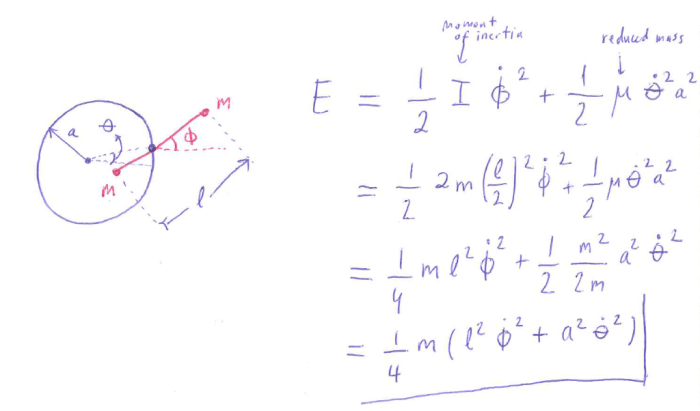 moment
of inertia
reduced mass
E = 1/2 I φ̇² + 1/2 μ θ̇² a²
= 1/2 2m (l/2)² φ̇² + 1/2 μ θ̇² a²
= 1/4 m l² φ̇² + 1/2 m²/2m a² θ̇²
= 1/4 m (l² φ̇² + a² θ̇²)
m
a
θ
φ
m
l